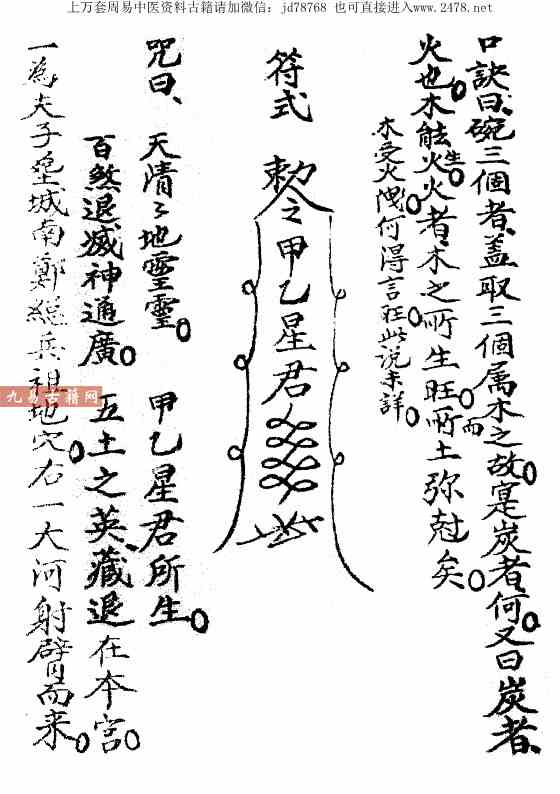 上万套周易中医资料古籍请加微信：jd78768 也可直接进入www.2478.net
口訣曰、碗三個者、盖取三個属木之故。寔炭者、何。又曰炭者、
火也。木能生火。火者、木之所生旺。而所土弥尅矣。
木受火洩。何得言旺。此说未詳。
符式
勅令之甲乙星君
咒曰、天清々地霊霊。甲乙星君所生。
百煞退滅神通廣。五土之英、藏退在本宮。
一為夫子 城南鄭総兵祖地穴。右一大河射臂而来。
九易古籍网